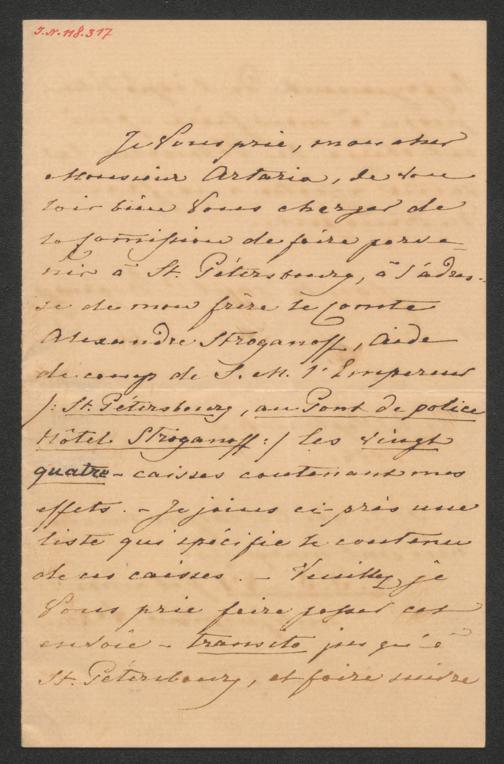 I.N. 118.317
Je Vous prie, mon cher
Monsieur Artaria, de vou
loir bien Vous charger de
la Comission de faire parve-
nir à St. Pétersbourg, à l'adres-
se de mon frère le Comte
Alexandre Stroganoff, Aide
de camp de S. M. l'Empereur
/: St. Pétersbourg, au Pont de police
Hôtel Stroganoff :/ les vingt
quatre - caisses contenant mes
effets. - Je joins ci-près une
liste qui spécifie le contenu
de ces caisses. - Veuillez, je
Vous prie faire passer cet
envoie - transito jusqu'à
St. Pétersbourg, et faire suivre